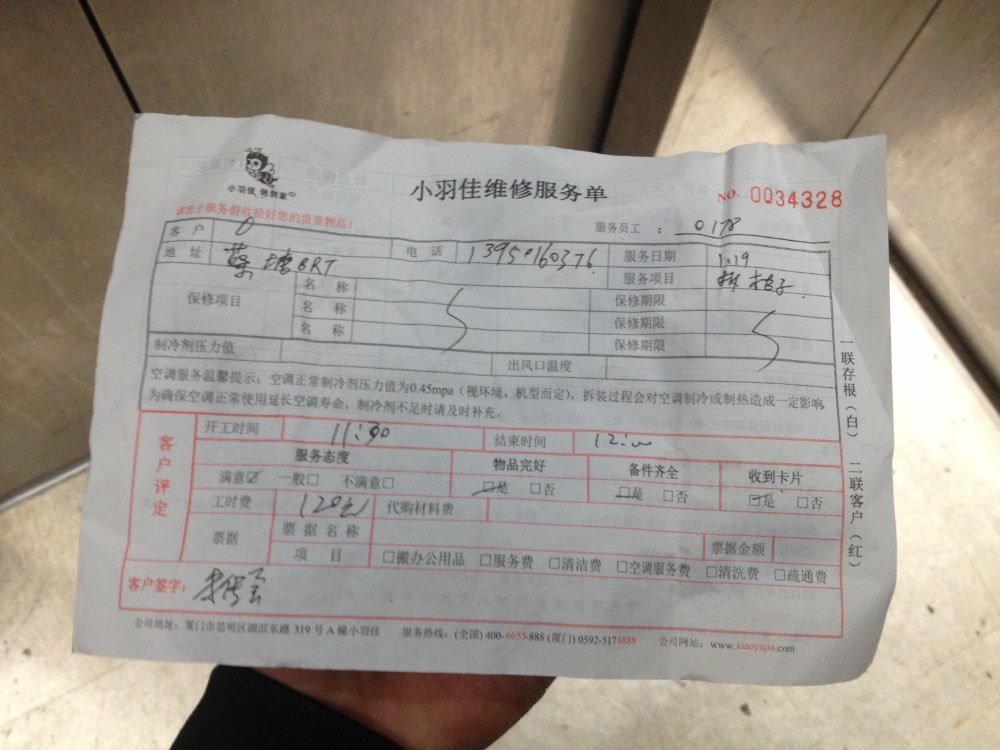 小羽佳 做到家
小羽佳维修服务单
NO. 0034328
请您于服务前收拾好您的贵重物品!
服务员工 : 0178
客户
电话 13950160376
服务日期 1.19
地址 蔡塘BRT
服务项目 拆柜子
保修项目
名 称
保修期限
名 称
保修期限
名 称
保修期限
制冷剂压力值
出风口温度
空调服务温馨提示：空调正常制冷剂压力值为0.45mpa（视环境、机型而定），拆装过程会对空调制冷或制热造成一定影响，
为确保空调正常使用延长空调寿命，制冷剂不足时请及时补充。
客户评定
开工时间 11:00
结束时间 12:00
服务态度
物品完好
备件齐全
收到卡片
满意☑ 一般□ 不满意□
☑是 □否
☑是 □否
☑是 □否
工时费 120元
代购材料费
票据
票据名称
票据金额
项 目
□搬办公用品 □服务费 □清洁费 □空调服务费 □清洗费 □疏通费
客户签字：
一联存根（白） 二联客户（红）
公司地址：厦门市思明区湖滨东路 319 号 A 幢小羽佳 服务热线：(全国) 400-6655-888 (厦门) 0592-5178888 公司网站：www.xiaoyujia.com